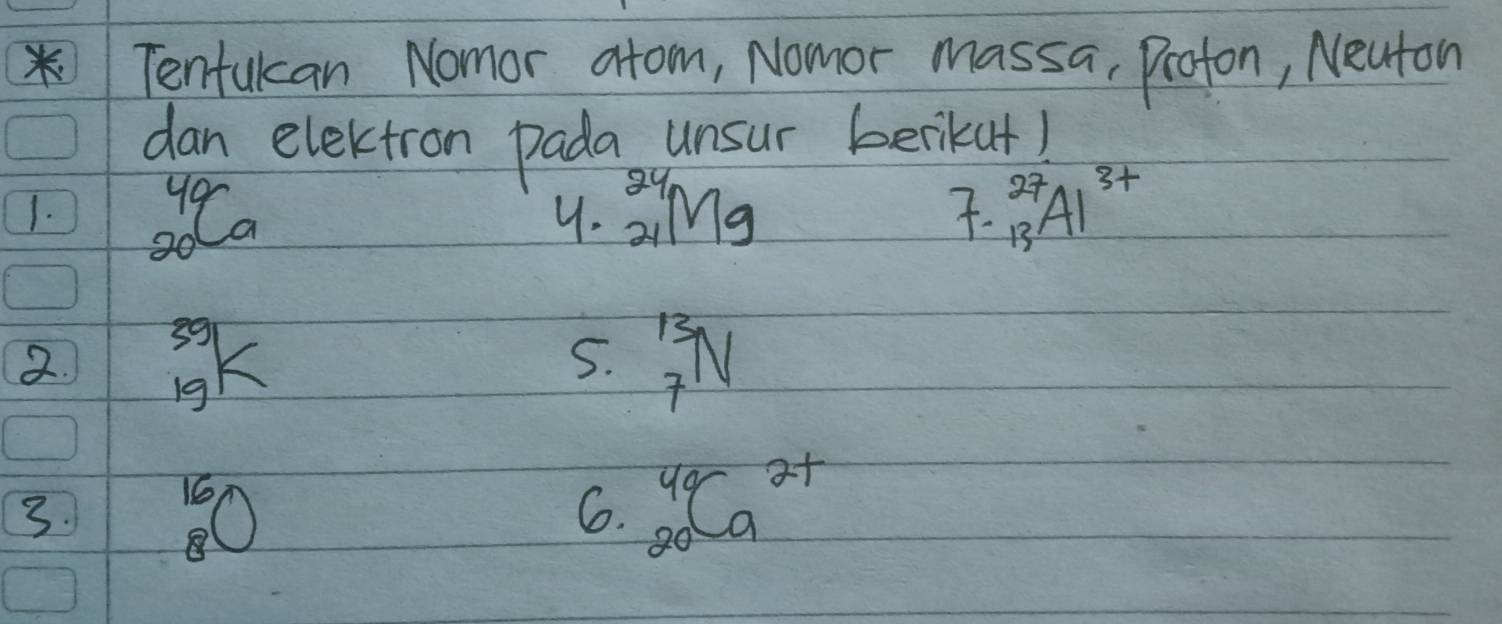 * Tentukan Nomor atom, Nomor massa, Proton, Neuton
dan elektron pada unsur berikut!
1. ⁴⁰₂₀Ca 4. ²⁴₂₁Mg 7. ²⁷₁₃Al³⁺
2. ³⁹₁₉K 5. ¹³₇N
3. ¹⁶₈O 6. ⁴⁰₂₀Ca²⁺